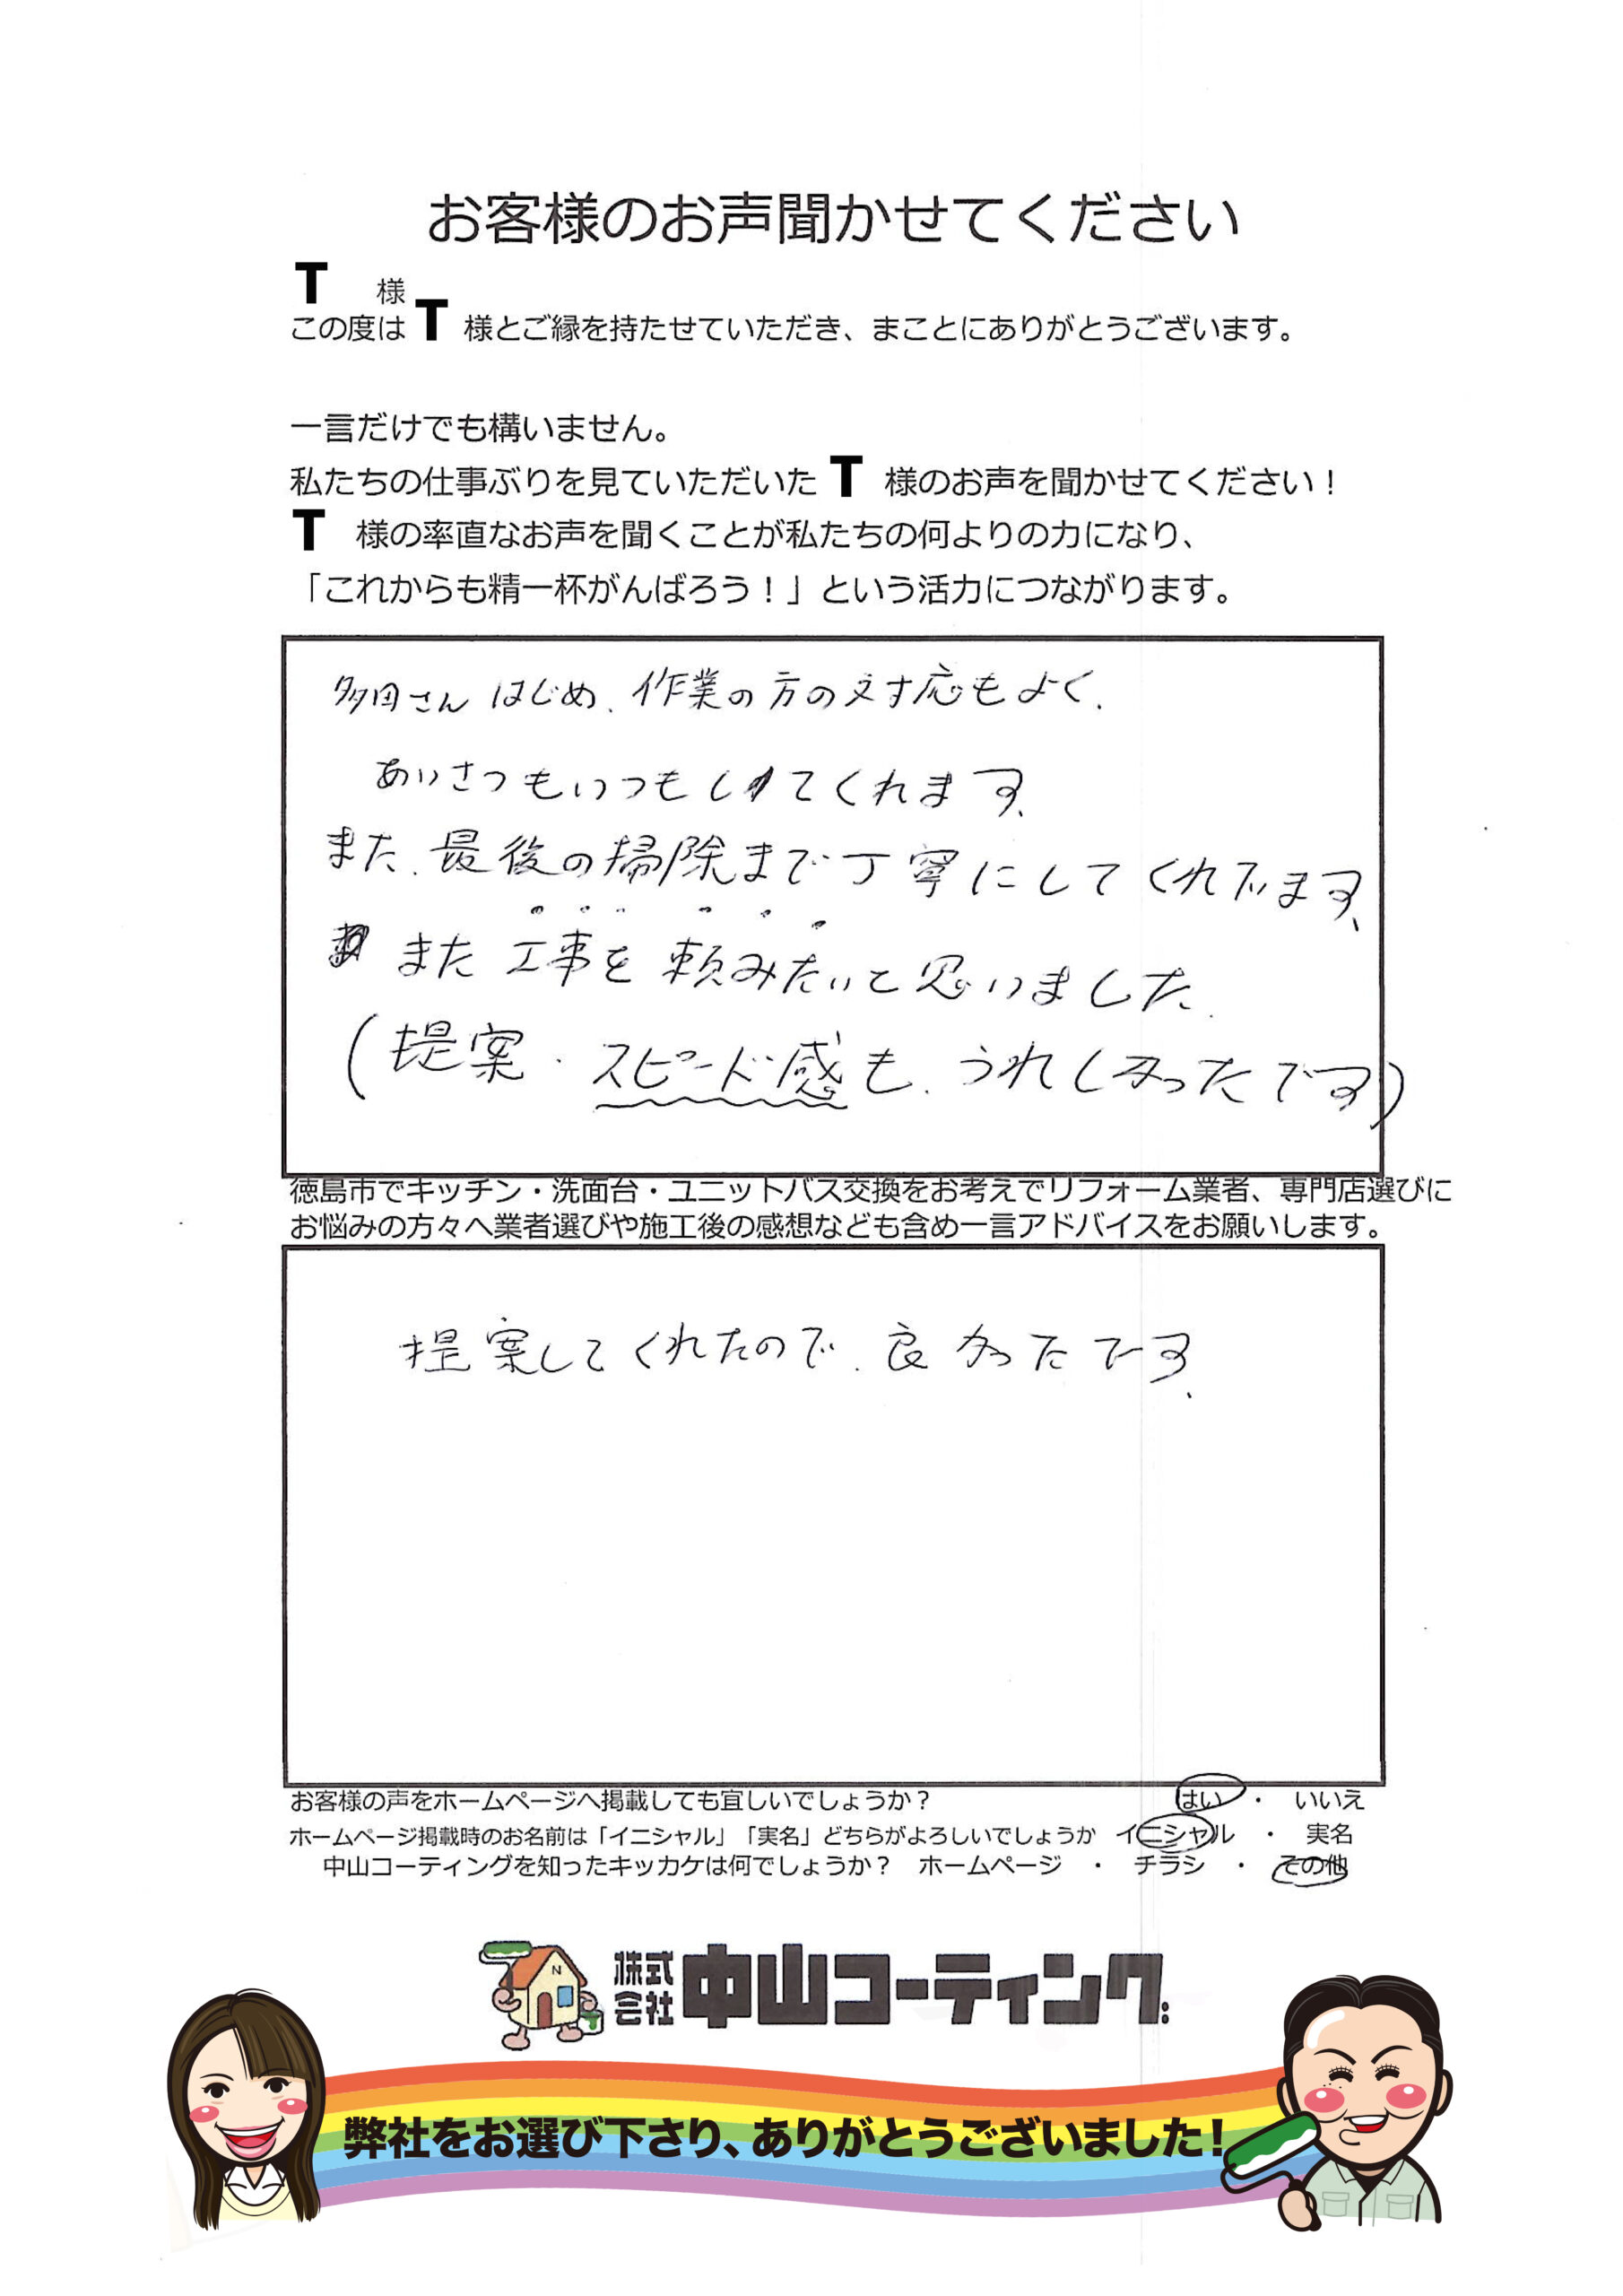 お客様のお声聞かせてください
T 様
この度は T 様とご縁を持たせていただき、まことにありがとうございます。
一言だけでも構いません。
私たちの仕事ぶりを見ていただいた T 様のお声を聞かせてください！
T 様の率直なお声を聞くことが私たちの何よりの力になり、
「これからも精一杯がんばろう！」という活力につながります。
多田さんはじめ、作業の方の対応もよく、
あいさつもいつもしてくれます、
また、最後の掃除まで丁寧にしてくれています、
また 工事を 頼みたいと思いました、
(提案・スピード感も、うれしかったです)
徳島市でキッチン・洗面台・ユニットバス交換をお考えでリフォーム業者、専門店選びに
お悩みの方々へ業者選びや施工後の感想なども含め一言アドバイスをお願いします。
提案してくれたので、良かったです、
お客様の声をホームページへ掲載しても宜しいでしょうか？ はい ・ いいえ
ホームページ掲載時のお名前は「イニシャル」「実名」どちらがよろしいでしょうか イニシャル ・ 実名
中山コーティングを知ったキッカケは何でしょうか？ ホームページ ・ チラシ ・ その他
N 株式会社 中山コーティング
弊社をお選び下さり、ありがとうございました！